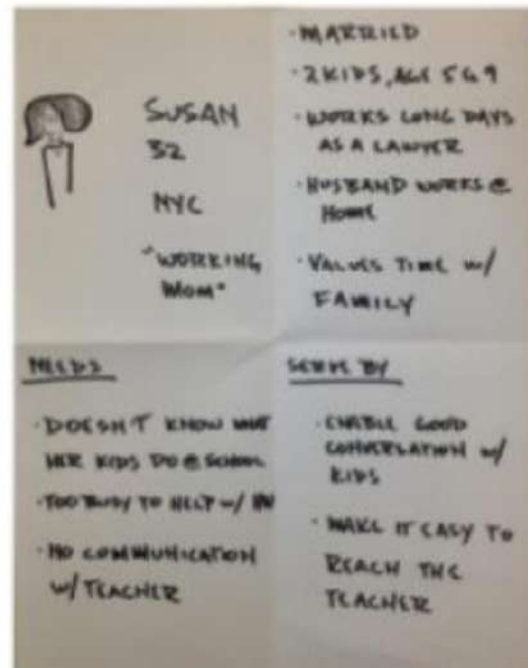 SUSAN
32
NYC
"WORKING
MOM"
· MARRIED
· 2 KIDS, AGE 5 & 9
· WORKS LONG DAYS
AS A LAWYER
· HUSBAND WORKS @
HOME
· VALUES TIME w/
FAMILY
NEEDS
· DOESN'T KNOW WHAT
HER KIDS DO @ SCHOOL
· TOO BUSY TO HELP w/ HW
· NO COMMUNICATION
w/ TEACHER
SERVE BY
· ENABLE GOOD
CONVERSATION w/
KIDS
· MAKE IT EASY TO
REACH THE
TEACHER